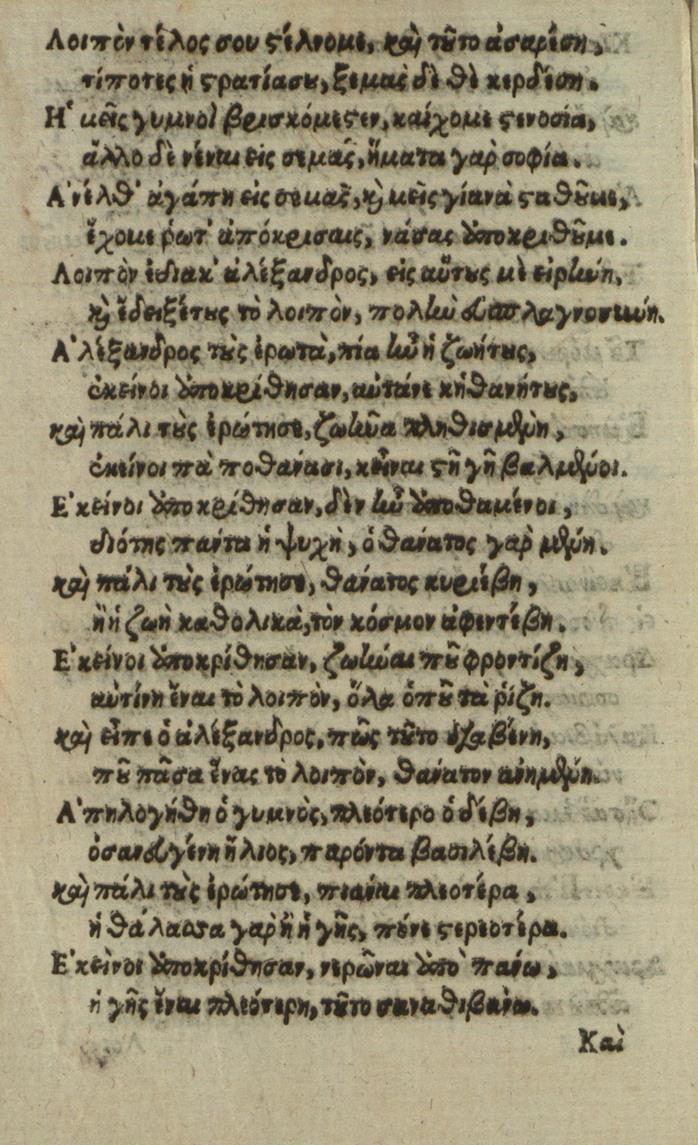 Λοιπὸν τέλος σου ϛέλνομε, καὶ τοῦτο ἀσαρέση,
τίποτες ἡ ϛρατίασου, ξεμᾶς δὲ θὲ κερδέση.
Ἡ μεῖς γυμνοὶ βρισκόμεϛεν, καίχομε ϛενοσία,
ἄλλο δὲ νέναι εἰς σεμάς, ἤματα γὰρ σοφία.
Ἀνέλθ' ἀγάπη εἰς σεμᾶς, κὶ μεῖς γίανὰ ϛαθοῦμε,
ἔχομε ῥωτ' ἀπόκρισαις, νάσας ὑποκριθοῦμε.
Λοιπὸν ἐδιακ' ἀλέξανδρος, εἰς αὔτους μὲ εἰρήνη,
κὶ ἔδειξέτους τὸ λοιπὸν, πολὺν
Ἀλέξανδρος τοὺς ἐρωτᾶ, πία ἦν ἡ ζωήτους,
ἐκεῖνοι ὑποκρίθησαν, αὐτάνε κἠθανήτους,
καὶ πάλι τοὺς ἐρώτησε, ζωνεῦα πληθισμένη,
ἐκεῖνοι πὰ ποθανασι, κεῖναι ϛῆ γῆ βαλμένοι.
Ἐκεῖνοι ὑποκρίθησαν, δὲν ἦν ὑποθαμένοι,
διότης πάντα ἡ ψυχὴ, ὁ θάνατος γὰρ μένη.
καὶ πάλι τοὺς ἐρώτησε, θάνατος κυριέβη,
ἢ ἡ ζωὴ καθολικὰ, τὸν κόσμον ἀφεντέβη.
Ἐκεῖνοι ὑποκρίθησαν, ζωὴναι ποῦ φροντίζη,
αὐτίνη ἔναι τὸ λοιπὸν, ὅλα ὁποῦ τὰ ῥίζη.
καὶ εἶπε ὁ ἀλέξανδρος, πῶς τοῦτο
ποῦ πᾶσα ἕνας τὸ λοιπὸν, θάνατον ἀνημένη.
Ἀπηλογήθη ὁ γυμνὸς, πλεότερο ὁδέβη,
ὁσὰν εὐγένη ἥλιος, παρόντα βασιλέβη.
καὶ πάλι τοὺς ἐρώτησε, πιαναι πλεοτέρα,
ἡ θάλασσα γὰρ ἢ ἡ γῆς, ποῦνε ϛερεοτέρα.
Ἐκεῖνοι ὑποκρίθησαν, νερῶναι ὑπὸ πάνω,
ἡ γῆς ἔναι πλεότερη, τοῦτο σαναθιβάνω.
Καὶ